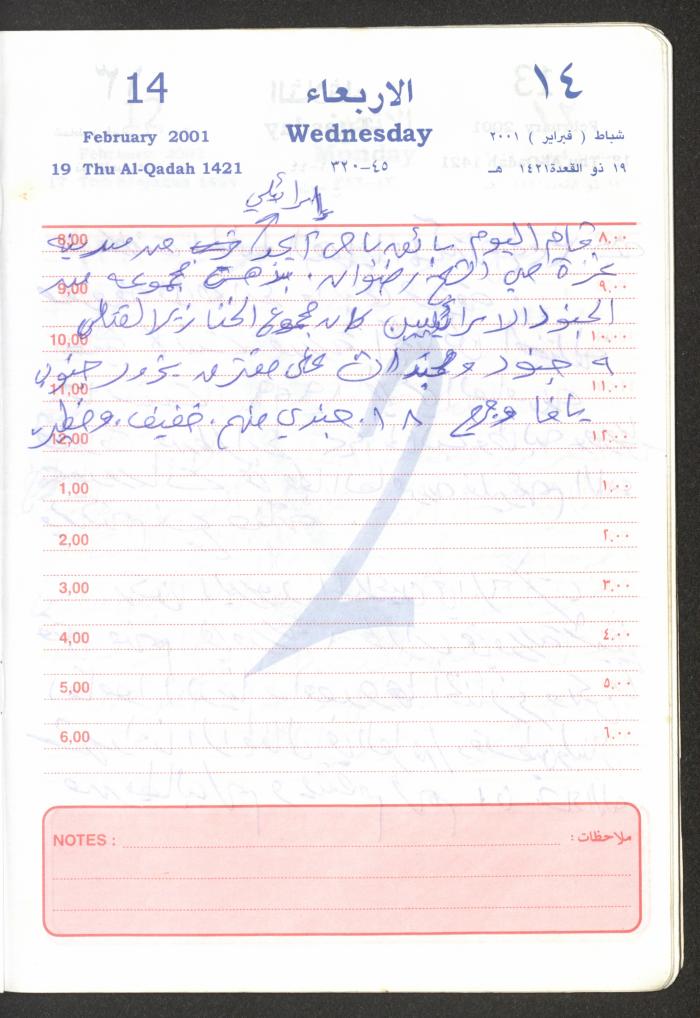 14 الاربعاء ١٤
February 2001 Wednesday شباط ( فبراير ) ٢٠٠١
19 Thu Al-Qadah 1421 ٤٥-٣٢٠ ١٩ ذو القعدة ١٤٢١ هـ
إسرائيلي
8,00 قام اليوم سائق باص من مدينة ٨.٠٠
غزة حي الشيخ رضوان مجموعه من
9,00 ٩.٠٠
الجنود الاسرائيليين كان مجموع الخنازير القتلى
10,00 ١٠.٠٠
٩ جنود على مفترق جنوب
11,00 ١١.٠٠
يافا وجرح ١٨ جندي منهم خفيف وخطير
12,00 ١٢.٠٠
1,00 ١.٠٠
2,00 ٢.٠٠
3,00 ٣.٠٠
4,00 ٤.٠٠
5,00 ٥.٠٠
6,00 ٦.٠٠
NOTES : ملاحظات :